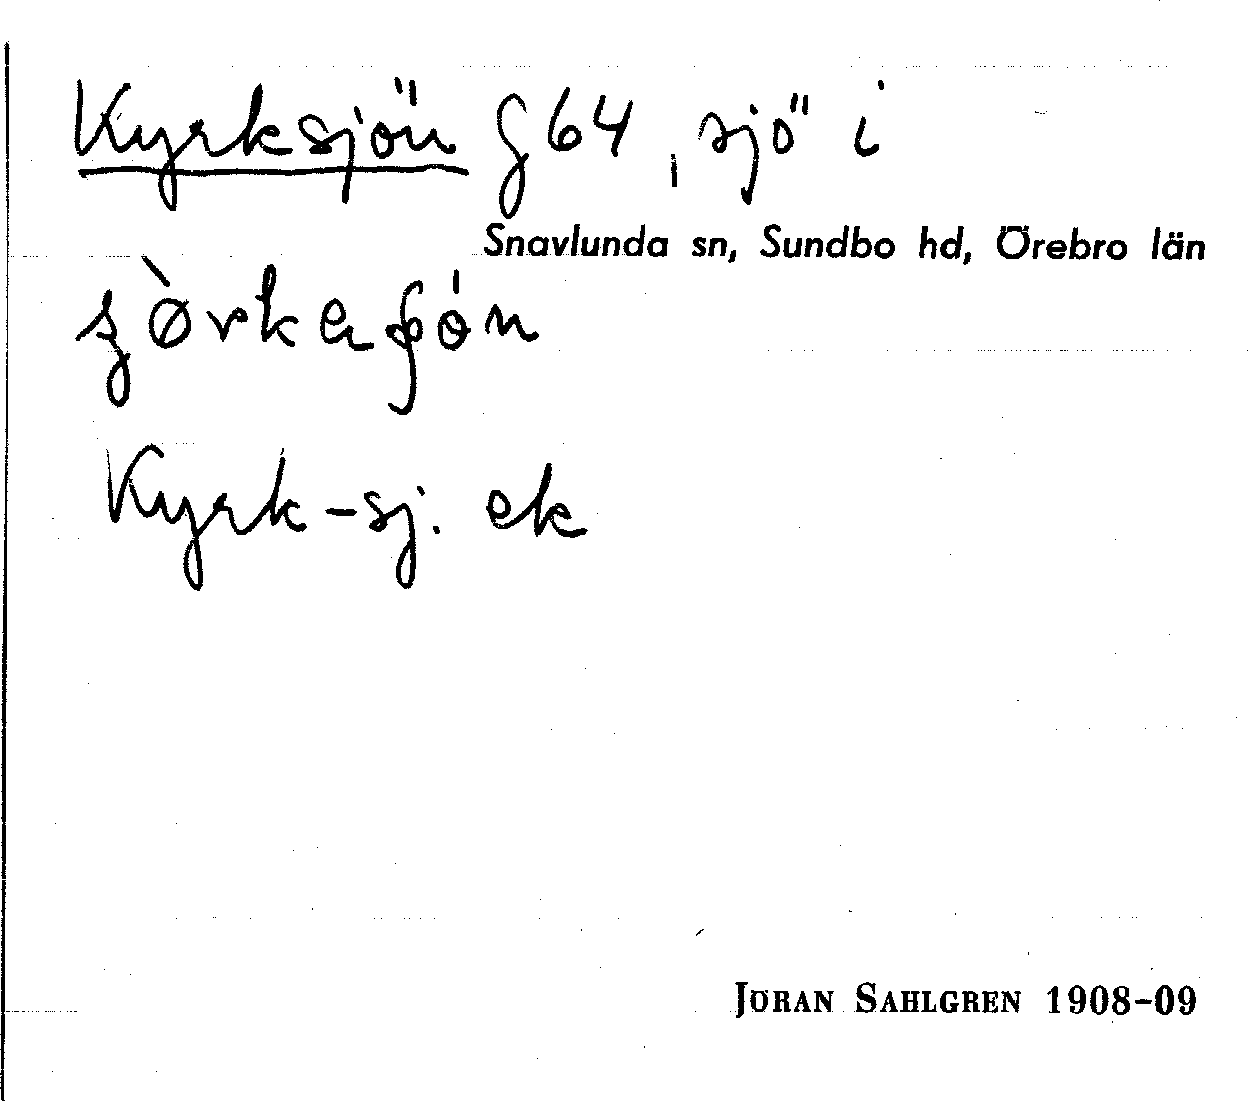 Kyrksjön g64, sjö i
Snavlunda sn, Sundbo hd, Örebro län
Kyrk-sj. ek
JÖRAN SAHLGREN 1908-09